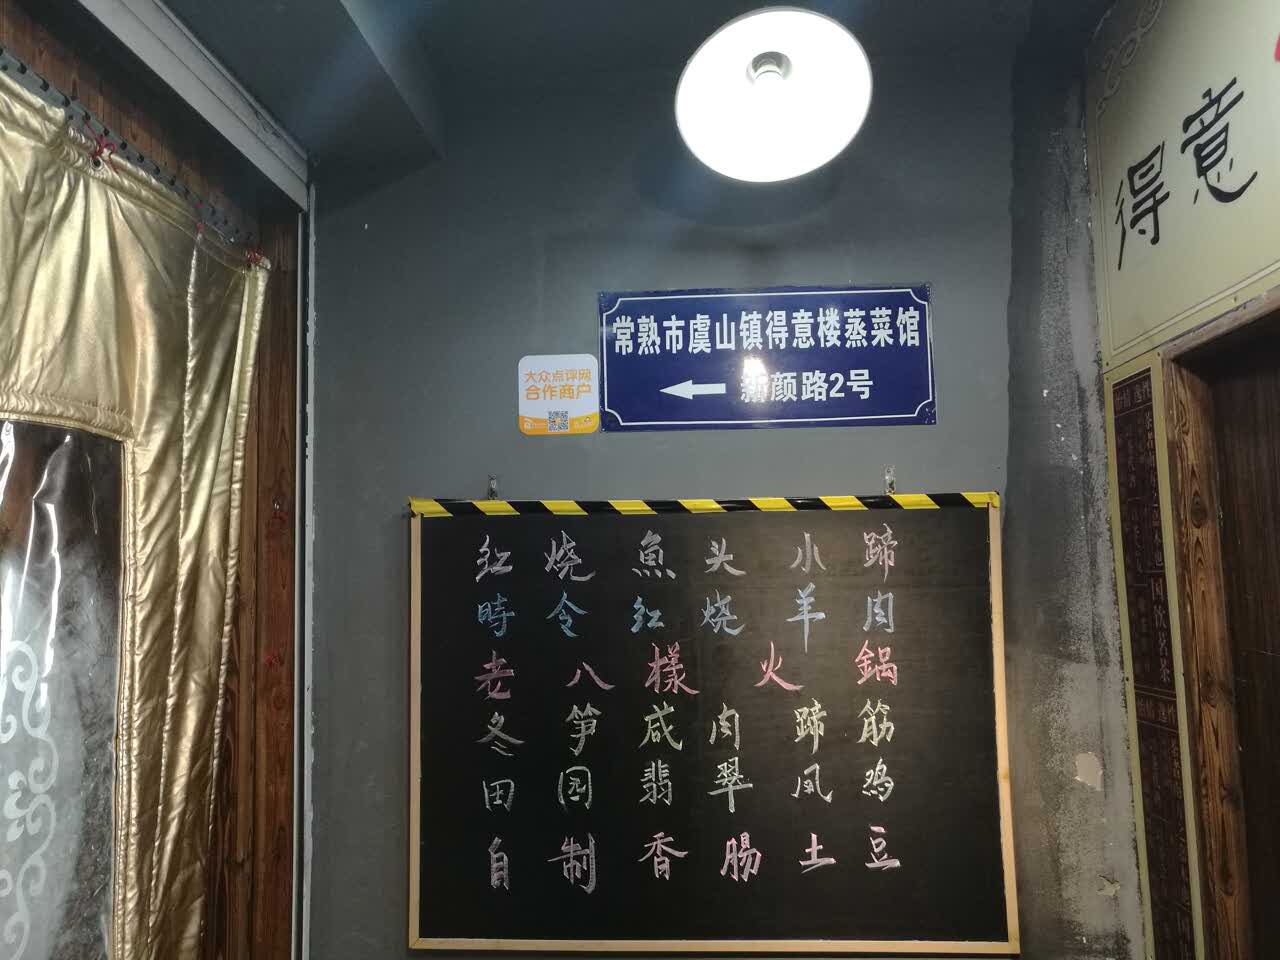 得意
常熟市虞山镇得意楼蒸菜馆
新颜路2号
大众点评网
合作商户
红烧魚头小蹄
時令红烧羊肉
老八樣火鍋
冬笋咸肉蹄筋
田园翡翠凤鸡
自制香腸土豆
国饮名茶